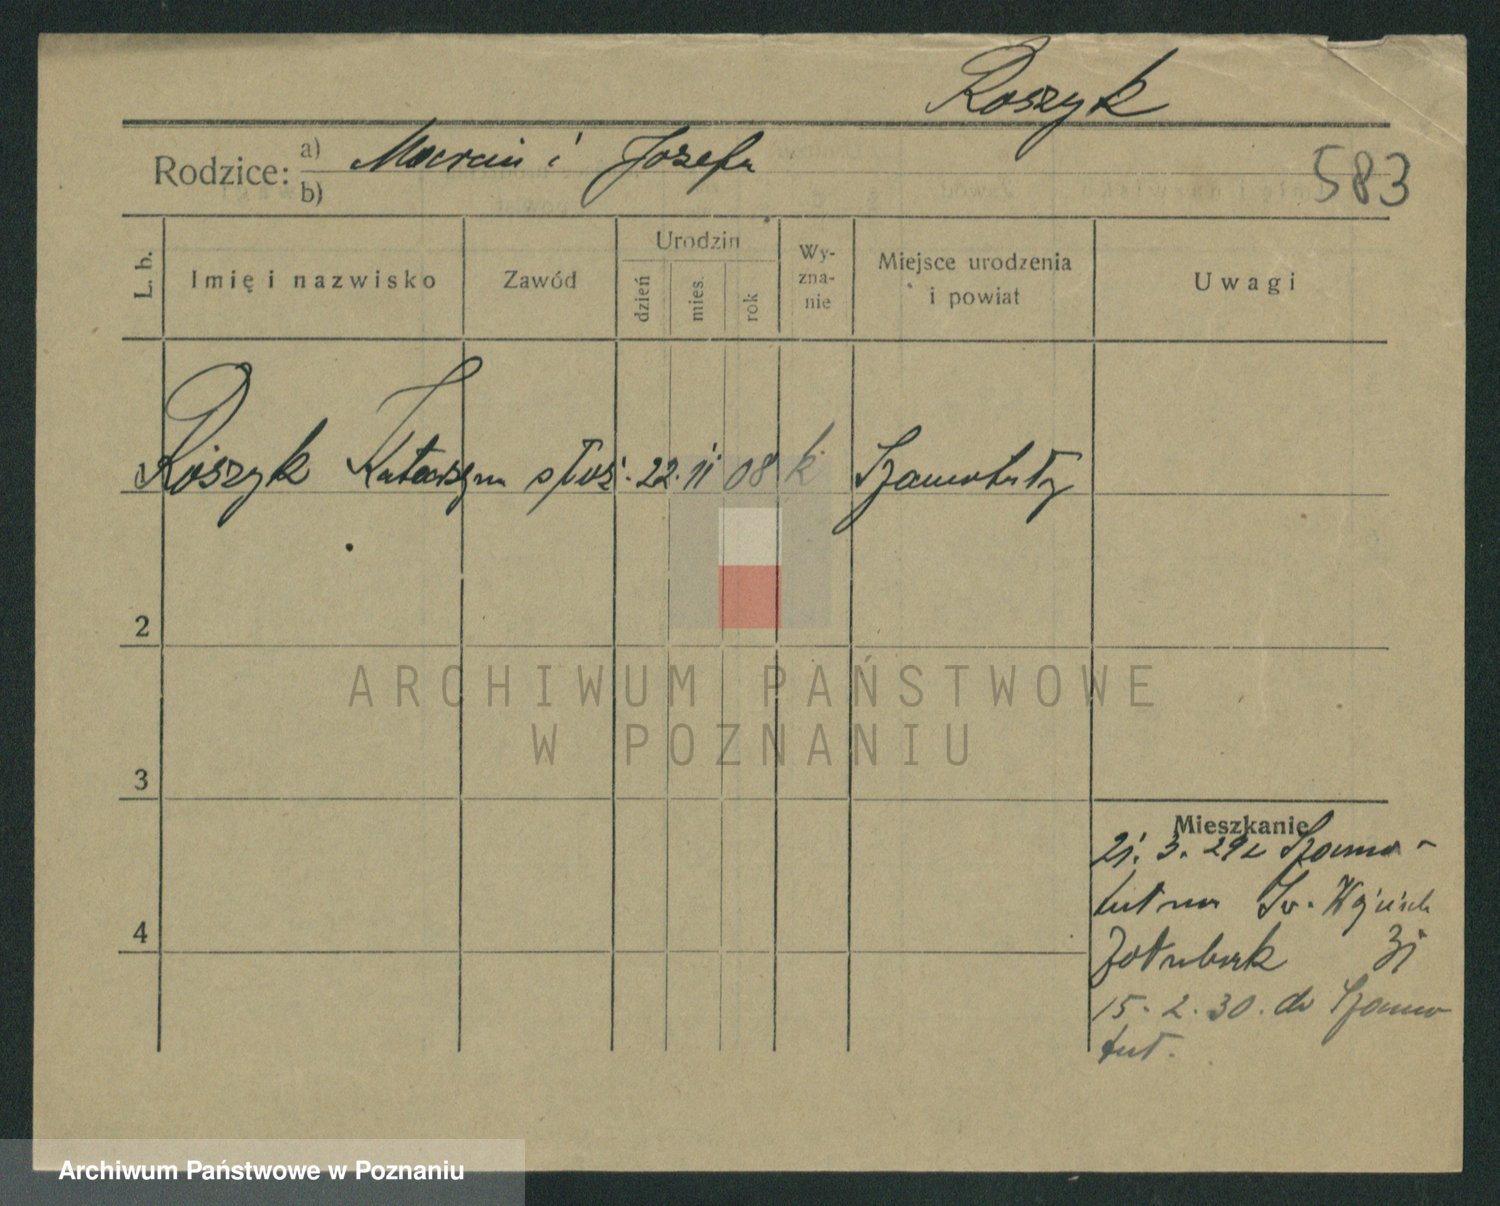 Roszyk
Rodzice: a) Marcin i Józefa
b)
583
L. b.
Imię i nazwisko
Zawód
Urodzin
dzień
mies.
rok
Wy-
zna-
nie
Miejsce urodzenia
i powiat
Uwagi
Roszyk Katarzyna służ. 22. 11 08 k Szamotuły
2
3
4
Mieszkanie
21. 3. 29 z Szamo-
tuł na Św. Wojciech
15. 2. 30. do Szamo
tuł.
ARCHIWUM PAŃSTWOWE
W POZNANIU
Archiwum Państwowe w Poznaniu